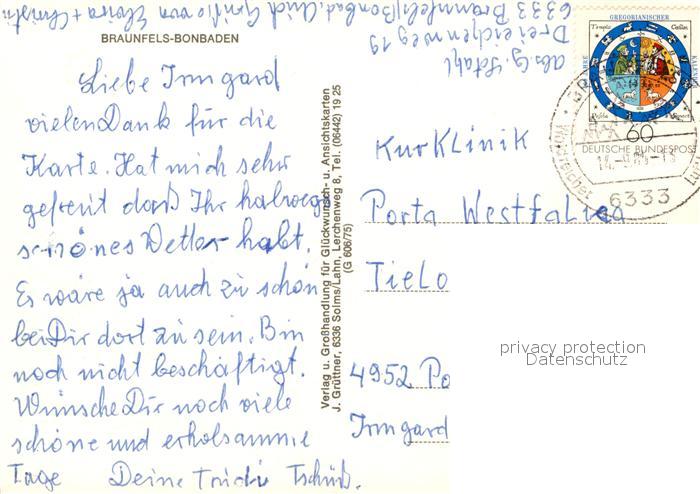 6333 Braunfels/Bonbad. Auch Grüße von Elvira + Christa
Dreieichenweg 19
abs. G. Stahl
BRAUNFELS-BONBADEN
Liebe Irmgard
vielen Dank für die
Karte. Hat mich sehr
gefreut daß Ihr halwegs
schönes Wetter habt.
Es wäre ja auch zu schön
bei Dir dort zu sein. Bin
noch nicht beschäftigt.
Wünsche Dir noch viele
schöne und erholsamme
Tage Deine Trudi Tschüß.
Verlag u. Großhandlung für Glückwunsch- u. Ansichtskarten
J. Grüttner, 6336 Solms/Lahn, Lerchenweg 8, Tel. (06442) 19 25
(G 606/75)
GREGORIANISCHER
60
DEUTSCHE BUNDESPOST
6333
KurKlinik
Porta Westfalica
Tielo
4952 Po
Irmgard
privacy protection
Datenschutz